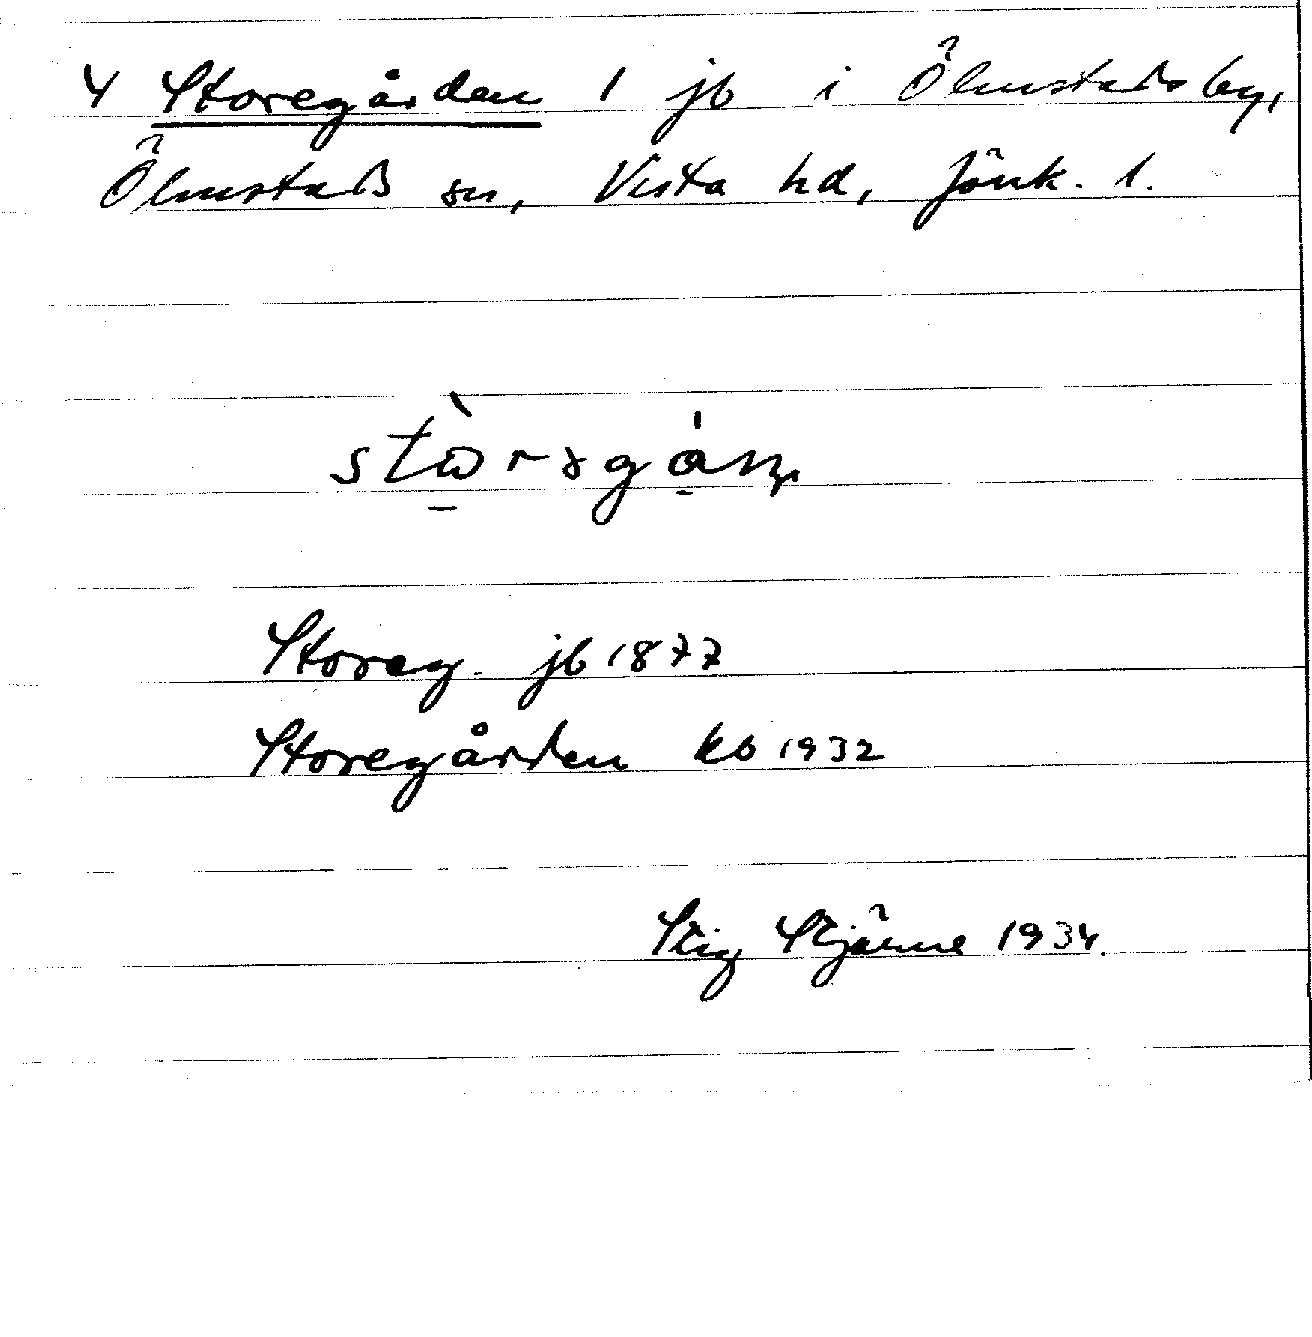 4 Storegården 1 jb i Ölmstads by,
Ölmstads sn, Vista hd, Jönk. l.
Storeg. jb 1877
Storegården kb 1932
Stig Stjärne 1934.